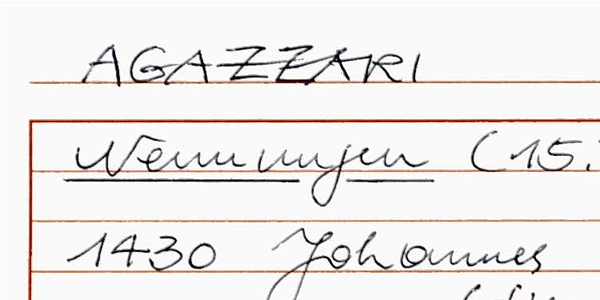 AGAZZARI
Nennungen (15.
1430 Johannes